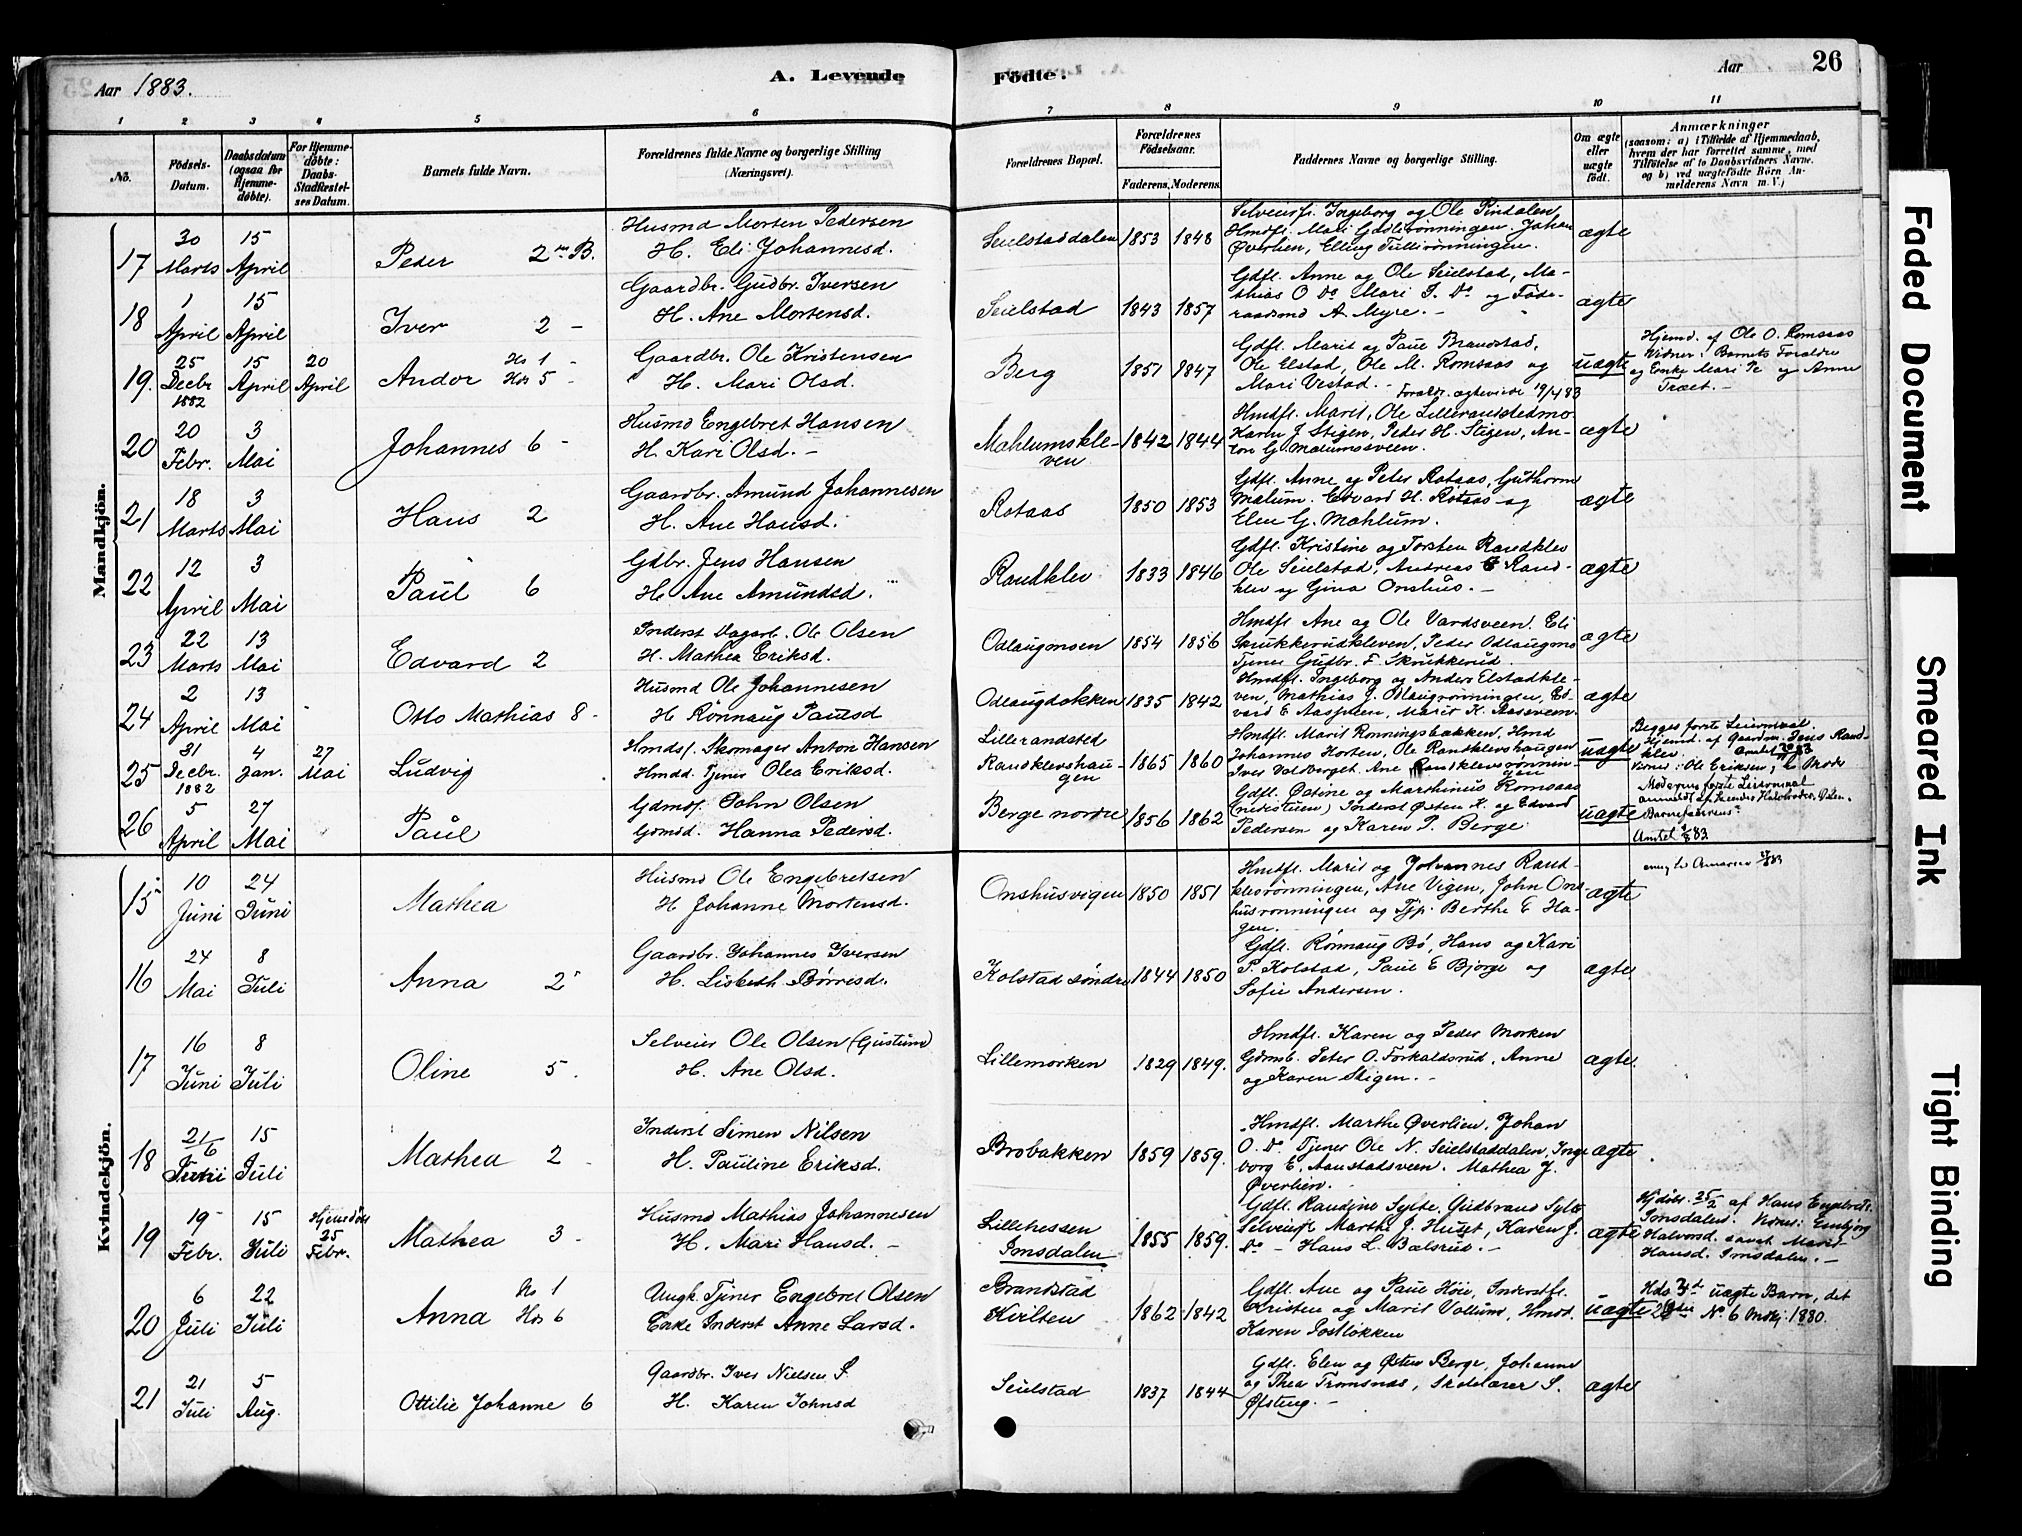 Aar 1883.
A. Levende
Födte.
Aar
26
1 2 3 4 5 6 7 8 9 10 11
No.
Födsels-Datum.
Daabsdatum (ogsaa for Hjemmedøbte).
For Hjemmedöbte: Daabs-Stadfæstelses Datum.
Barnets fulde Navn.
Forældrenes fulde Navne og borgerlige Stilling (Næringsvei).
Forældrenes Bopæl.
Forældrenes Födselsaar.
Faderens. Moderens.
Faddernes Navne og borgerlige Stilling.
Om ægte eller uægte födt.
Anmærkninger
(saasom: a) i Tilfælde af Hjemmedaab, hvem der har forrettet samme, med Tilföielse af to Daabsvidners Navne. og b) ved uægtefödte Börn Anmelderens Navn m. V.)
Mandkjön.
17 30 Marts 15 April Peder 2 B. Husmd Morten Pedersen
H. Eli Johannesd. Seielstaddalen 1853 1848 Selveierfl. Ingeborg og Ole Pindalen
Hmdfl. Mari Johan
Øverlien, Elling ægte
18 1 April 15 April Iver 2 - Gaardbr. Gudbr. Iversen
H. Ane Mortensd. Seielstad 1843 1857 Gdfl. Anne og Ole Seielstad, Mathias O Do Mari I. Do og Föderaadsmd A. Myre. - ægte
19. 25 Decbr 1882 15 April 20 April Andor Hs 1 - Hds 5 - Gaardbr. Ole Kristensen
H. Mari Olsd. Berg 1851 1847 Gdfl. Marit og Paul Brandstad,
Ole Elstad, Ole M. Romsaas og
Mari Vestad. - Foraldr. ægteviede 19/4 83 uægte Hjemd. af Ole O. Romsaas
Vidner: Barnets Foraldre
og Enke Mari og Anne
Træet. -
20 20 Febr. 3 Mai Johannes 6 - Husmd Engebret Hansen
H. Kari Olsd. - Mahlumskleven 1842 1844 Hmdfl. Marit, Ole Lillerandstedmo
Karen J. Stigen, Peder H. Stigen, Anton G. Malumsveen. ægte
21 18 Marts 3 Mai Hans 2 Gaardbr. Amund Johannesen
H. Ane Hansd. Rotaas 1850 1853 Gdfl. Anne og Peter Rotaas, Guthorm
Malum. Edvard H. Rotaas og
Elen G. Mahlum. ægte
22 12 April 3 Mai Paul 6 Gdbr. Jens Hansen
H. Ane Amundsd. Randklev 1833 1846 Gdfl. Kristine og Torsten Randklev
Ole Seielstad, Andreas E Randklev og Gina Onshus. - ægte
23 22 Marts 13 Mai Edvard 2 Inderst Dagarb. Ole Olsen
H. Mathea Eriksd. Odlaugmoen 1854 1856 Hmdfl Ane og Ole Vardsveen. Eli
Skrukkerudkleven, Peder Odlaugmo
Tjener Gudbr. F. Skrukkerud. ægte
24 2 April 13 Mai Otto Mathias 8 - Husmd Ole Johannesen
H Rönnaug Paulsd Odlaugdokken 1835 1842 Hmdfl. Ingeborg og Anders Elstadkleven, Mathias J. Odlaugrönningen, Edvard E Aasveen, Marit K. Aasveen. ægte
25 31 Decbr. 1882 4 Jan. 27 Mai Ludvig Hmdsf. Skomager Anton Hansen
Hmdd. Tjener Olea Eriksd. Lillerandsted
Randklevshaugen 1865 1860 Hmdfl. Marit Ronningsbakken, Hmd
Johannes Horten, Ole Randklevshaugen
Iver Voldberget. Ane Randklevsrønningen uægte Begges første Leiermaal.
Hjemd. af Gaardm. Jens Randklev. Anmeldt
Vidner: Ole Eriksen,
26 5 April 27 Mai Paul Gdmdsf. John Olsen
Gdmdd. Hanna Pedersd. Berge nordre 1856 1862 Gdfl. Østine og Marthinus Romsaas
(nedistuen) Inderst Østen K. og Edvard
Pedersen og Karen P. Berge uægte Moderens første Leiermaal
anmeldt af
Barnefaderens
Kvindekjön.
15 10 Juni 24 Juni Mathea Husmd Ole Engebretsen
H Johanne Mortensd. Onshusvigen 1850 1851 Hmdfl. Marit og Johannes Randklevsrönningen, Ane Vigen, John Onshusrønningen og Tjp. Berthe E Hagen. ægte
16 24 Mai 8 Juli Anna 2 Gaardbr. Johannes Iversen
H. Lisbeth Børresd. Kolstad søndre 1844 1850 Gdfl. Rønnaug Bö, Hans og Kari
P. Kolstad, Paul E Bjørge og
Sofie Andersen. ægte
17 16 Juni 8 Juli Oline 5. Selveier Ole Olsen (Gustum)
H. Ane Olsd. Lillemorken 1829 1849. Hmdfl. Karen og Peder Morken
Gdmb. Peter O. Forkaldsrud, Anne
og Karen Stigen. - ægte.
18 21/6 Juni 15 Juli Mathea 2 - Inderst Simen Nilsen
H. Pauline Eriksd. Brobakken 1859 1859. Hmdfl. Marthe Øverlien, Johan
O. Do. Tjener Ole N. Seielstaddalen, Ingeborg E. Aanstadsveen. Mathea J.
Øverlien. - ægte
19 19 Febr. 15 Juli Hjemdöbt 25 Febr. Mathea 3 - Husmd Mathias Johannesen
H. Mari Hansd. - Lillehessen
Imsdalen 1855 1859. Gdfl. Randine Sylte, Gudbrand Sylte
Selveierfl Marthe J. Huset, Karen J.
Do - Hans L. Bælsrud. - ægte Hjdöbt. 25/2 af Hans Engebrets.
Imsdalen. Vidner: Embjørg
Halvorsd. samt Marit
Hansd. Imsdalen. -
20 6 Juli 22 Juli Anna Hs 1 Hds 6 Ungk. Tjener Engebret Olsen
Enke Inderst Anne Larsd. Brandstad
Kvilten 1862 1842 Gdfl. Ane og Paul Höie, Inderstfl.
Kristen og Marit Vollum, Hmd.
Karen uægte Hds 3d uægte Barn, det
2det No 6 Mdkj. 1880.
21 21 Juli 5 Aug. Ottilie Johanne 6 Gaardbr. Iver Nielsen S.
H. Karen Johnsd Seielstad 1837 1844 Gdfl. Elen og Østen Berge, Johanne
og Thea Tromsnas, Skolelærer S.
Øfsteng. - ægte
Faded Document
Smeared Ink
Tight Binding